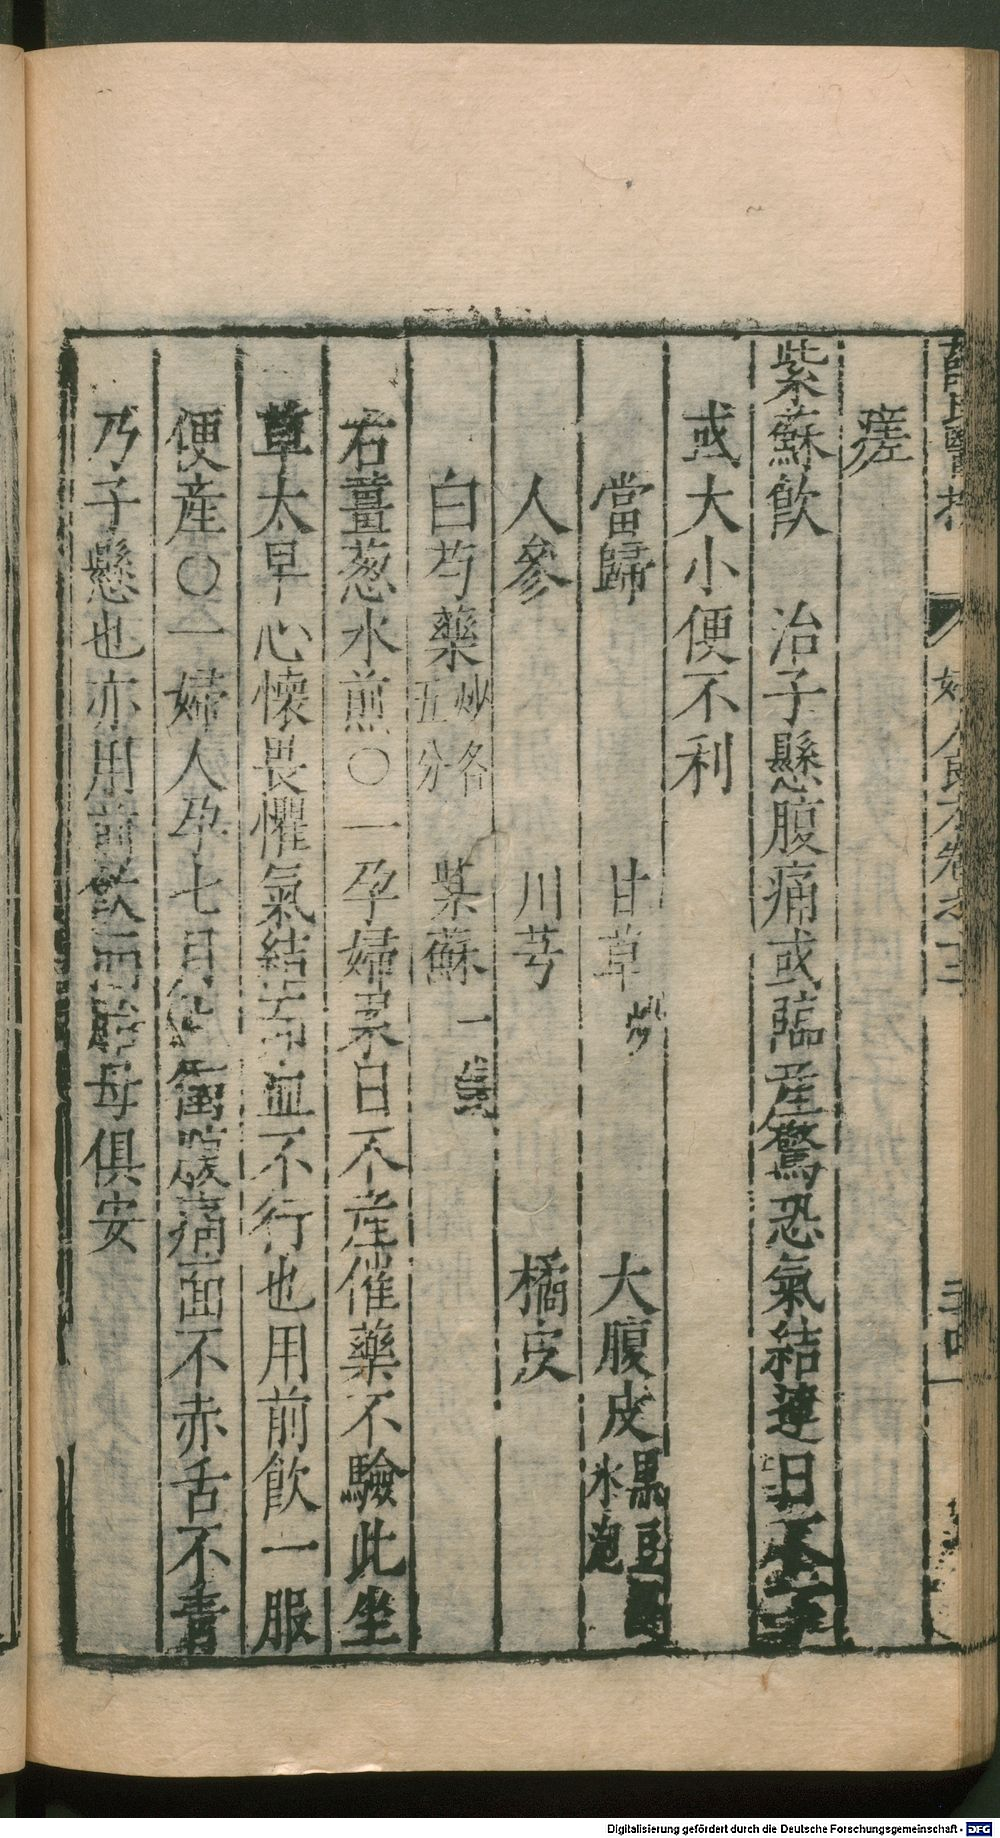 薛氏醫按 婦人良方卷之十二 三十四
瘥
紫蘇飲 治子懸腹痛或臨產驚恐氣結連日不
或大小便不利
當歸 甘草炒 大腹皮黑豆水泡
人參 川芎 橘皮
白芍藥炒各五分 紫蘇一錢
右薑葱水煎○一孕婦累日不產催藥不驗此坐
草太早心懷畏懼氣結而血不行也用前飲一服
便產○一婦人孕七月 衝腹痛面不赤舌不青
乃子懸也亦用前飲而胎母俱安
Digitalisierung gefördert durch die Deutsche Forschungsgemeinschaft - DFG